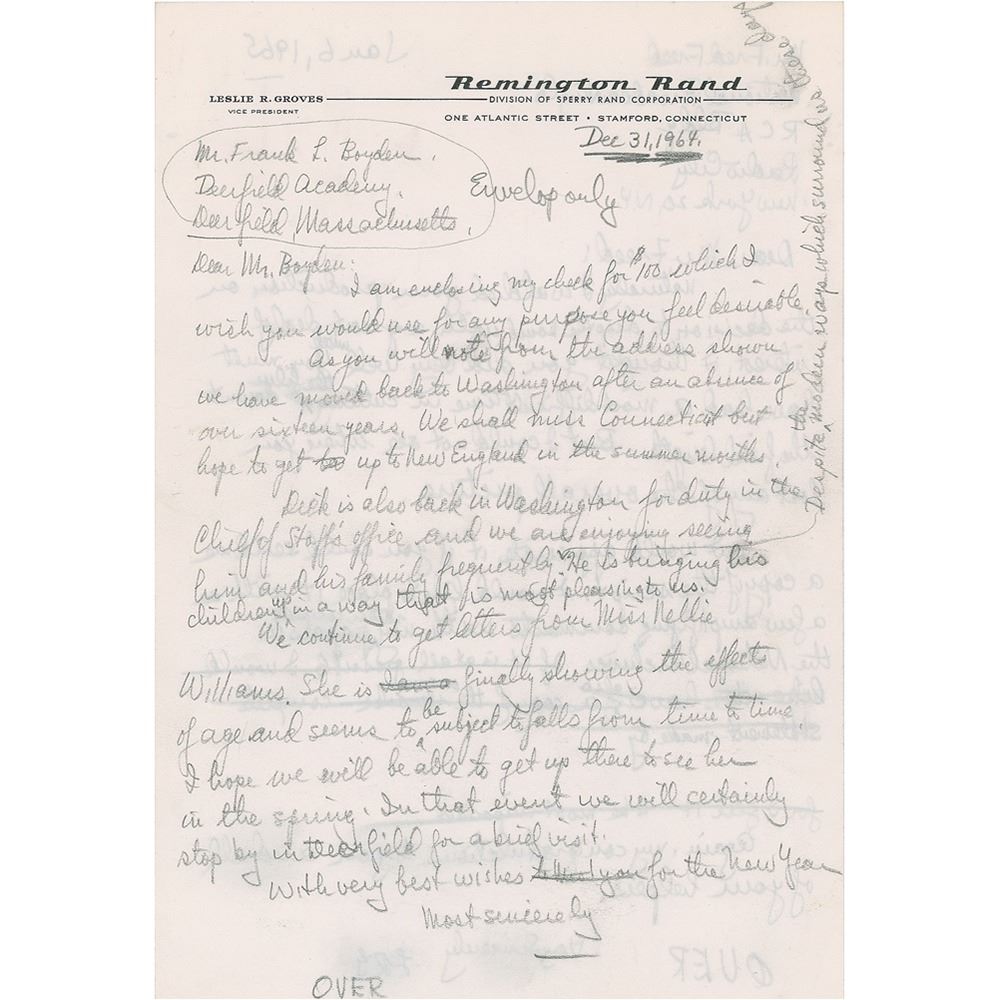 Remington Rand
LESLIE R. GROVES
DIVISION OF SPERRY RAND CORPORATION
VICE PRESIDENT
ONE ATLANTIC STREET • STAMFORD, CONNECTICUT
Dec 31, 1964.
Mr. Frank L. Boyden.
Deerfield Academy.
Deerfield, Massachusetts.
Envelop only
Dear Mr. Boyden:
I am enclosing my check for $100 which I
wish you would use for any purpose you feel desirable.
As you will note from the address shown
we have moved back to Washington after an absence of
over sixteen years. We shall miss Connecticut but
hope to get up to New England in the summer months.
Dick is also back in Washington for duty in the
Chief of Staff's office and we are enjoying seeing
him and his family frequently. He is bringing his
children up in a way that is most pleasing to us.
Despite the modern ways which surround us these days
We continue to get letters from Miss Nellie
Williams. She is I am a finally showing the effects
of age and seems to be subject to falls from time to time.
I hope we will be able to get up there to see her
in the spring. In that event we will certainly
stop by in Deerfield for a brief visit.
With very best wishes you for the New Year
Most sincerely
OVER